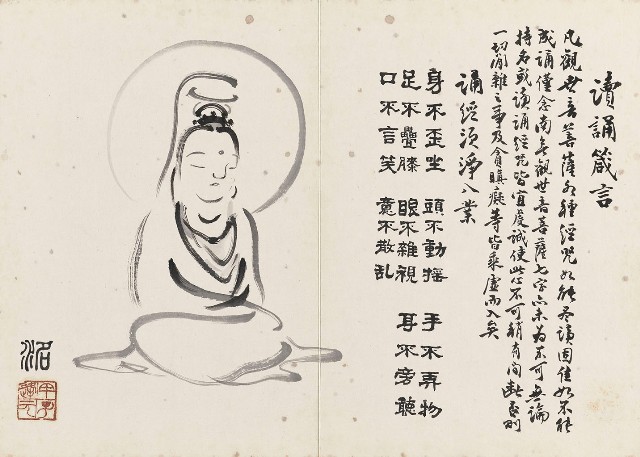 讀誦箴言
凡觀世音菩薩各種經咒如能多讀固佳如不能
成誦僅念南無觀世音菩薩七字亦未为不可無論
持名或讀誦經咒皆宜虔誠使此心不可稍有间断否則
一切闲雜之事及貪瞋癡等皆乘虛而入矣
誦經須淨八業
身不歪坐 頭不動搖 手不弄物
足不疊膝 眼不雜視 耳不旁聽
口不言笑 意不散乱